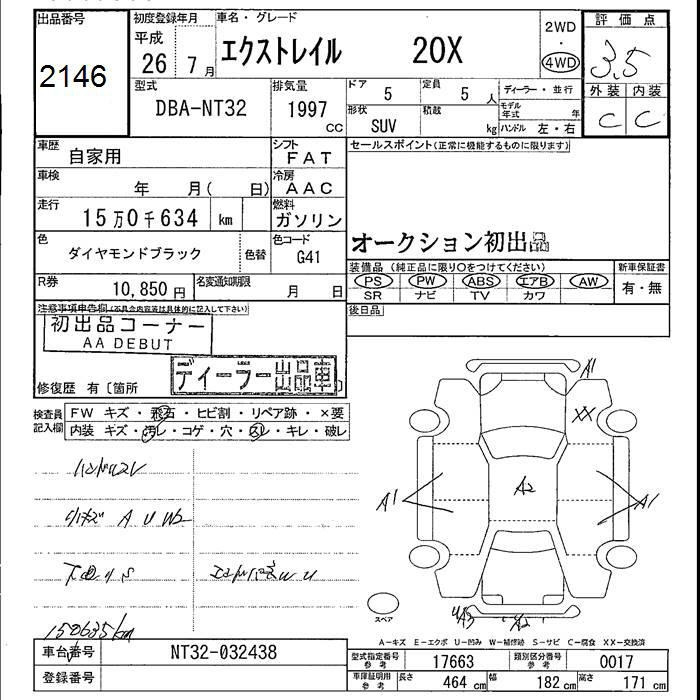 出品番号
2146
初度登録年月
平成
26 7月
車名・グレード
エクストレイル 20X
2WD
・
4WD
評価点
3.5
外装 内装
C C
型式
DBA-NT32
排気量
1997
CC
ドア
5
定員
5 人
ディーラー・並行
形状
SUV
積載
kg
モデル
年式 年
ハンドル 左・右
車歴
自家用
シフト
FAT
セールスポイント(正常に機能するものに限ります)
車検
年 月( 日)
冷房
AAC
走行
15万0千634 km
燃料
ガソリン
オークション初出品
色
ダイヤモンドブラック
色替
色コード
G41
装備品 (純正品に限り○をつけてください)
PS PW ABS エアB AW
SR ナビ TV カワ
新車保証書
有・無
R券
10,850円
名変通知期限
月 日
後日品
注意事項申告欄(不具合内容等は具体的に記入して下さい)
初出品コーナー
AA DEBUT
ディーラー出品車
修復歴 有〔箇所
検査員
記入欄
FW キズ・飛石・ヒビ割・リペア跡・×要
内装 キズ・汚レ・コゲ・穴・スレ・キレ・破レ
A1
XX
A1
A2
A1
A2
A U W2
S
U
150635km
スペア
A-キズ E-エクボ U-凹み W-補修跡 S-サビ C-腐食 XX-交換済
車台番号
NT32-032438
登録番号
型式指定番号
参考
17663
類別区分番号
参考
0017
車庫証明用
参考
長さ
464 cm
幅
182 cm
高さ
171 cm